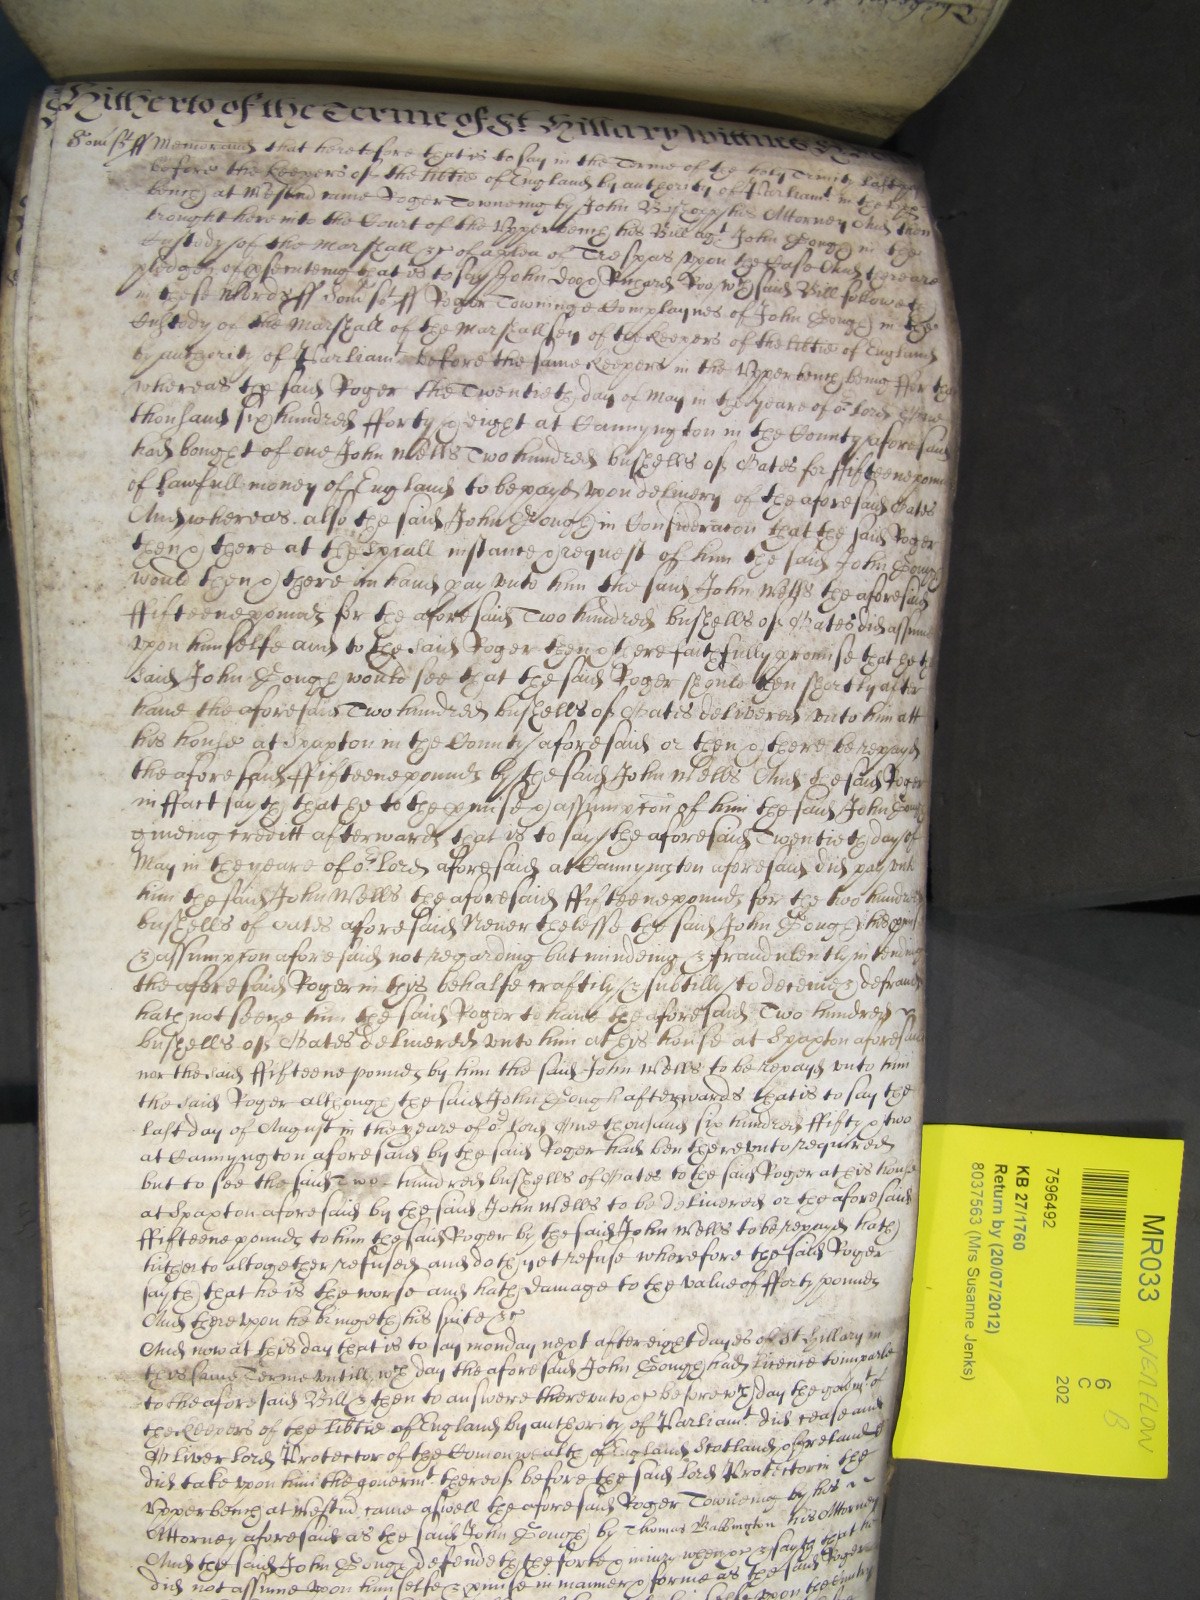 Hitherto of the Terme of St. Hillary Wittnes
Som̃st ff Memorand that heretofore that is to say in the Terme of the holy Trinity last past
before the Keepers of the libtie of England by authority of Parliamt. in the Upper
bench at Westmr. came Roger Towneing by John his Attorney And then
brought here into the Court of the Upper bench his Bill agt. John Gough in the
Custody of the Marshall &c of a plea of Trespas upon the Case And there are
pledges of psecuteing that is to say John Doo & Richard Roo wch said Bill followeth
in these Words ff Som̃st ff Roger Towninge Complaynes of John Gough in the
Custody of the Marshall of the Marshallsey of the Keepers of the libtie of England
by authority of Parliamt. before the same Keepers in the Upper bench being ffor that
whereas the said Roger the Twentieth day of May in the yeare of or Lord One
thousand six hundred fforty & eight at Cannyngton in the County aforesaid
had bought of one John Wells Two hundred bushells of Oates for ffifteene pounds
of Lawfull money of England to be payd upon delivery of the aforesaid Oates
And whereas also the said John Gough in Consideracon that the said Roger
then & there at the Spiall instance & request of him the said John Gough
would then & there in hand pay unto him the said John Wells the aforesaid
ffifteene pounds for the aforesaid Two hundred bushells of Oates did assume
upon himselfe and to the said Roger then & there faithfully promise that he the
said John Gough would see that the said Roger should then shortly after
have the aforesaid Two hundred bushells of Oates delivered unto him att
his house at Spaxton in the County aforesaid or then & there be repayd
the aforesaid ffifteene pounds by the said John Wells And the said Roger
in ffact sayth that he to the pmise & assumpcon of him the said John Gough
giveing creditt afterwards that is to say the aforesaid Twentieth day of
May in the yeare of or Lord aforesaid at Cannyngton aforesaid did pay unto
him the said John Wells the aforesaid ffifteene pounds for the two hundred
bushells of oates aforesaid Neverthelesse the said John Gough his pmise
& assumpcon aforesaid not regarding but mindeing & fraudulently intending
the aforesaid Roger in this behalfe craftily & subtilly to deceive & defraud
hath not seene him the said Roger to have the aforesaid Two hundred
bushells of Oates delivered unto him at his house at Spaxton aforesaid
nor the said ffifteene pounds by him the said John Wells to be repayd unto him
the said Roger although the said John Gough afterwards that is to say the
last day of August in the yeare of or Lord One thousand six hundred ffifty & two
at Cannyngton aforesaid by the said Roger had ben thereunto required
but to see the said Two hundred bushells of Oates to the said Roger at his house
at Spaxton aforesaid by the said John Wells to be delivered or the aforesaid
ffifteene pounds to him the said Roger by the said John Wells to be repayd hath
hitherto altogether refused and doth yet refuse wherefore the said Roger
sayth that he is the worse and hath damage to the value of fforty pounds
And thereupon he bringeth his suite &c
And now at this day that is to say monday next after eight dayes of St Hillary in
this same Terme untill wch day the aforesaid John Gough had licence to imparle
to the aforesaid Bill & then to answere thereunto &c before wch day the govermt. of
the Keepers of the libtie of England by authority of Parliamt. did cease and
Oliver Lord Protector of the Comonwealth of England Scotland & Ireland
did take upon him the govermt. thereof before the said Lord Protector in the
Upper bench at Westmr. came aswell the aforesaid Roger Towneing by his
Attorney aforesaid as the said John Gough by Thomas Ballington his Attorney
And the said John Gough defendeth the force & iniury when &c & sayth that he
did not assume upon himselfe & pmise in manner & forme as the said Roger
upon the Country
MR033
OVERFLOW
B
6
C
202
7596492
KB 27/1760
Return by (20/07/2012)
8037563 (Mrs Susanne Jenks)